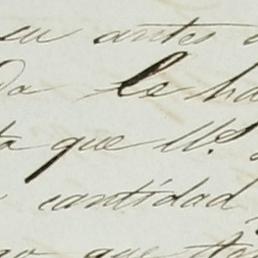 en antes
da le ha
ta que Ud.
cantidad
que